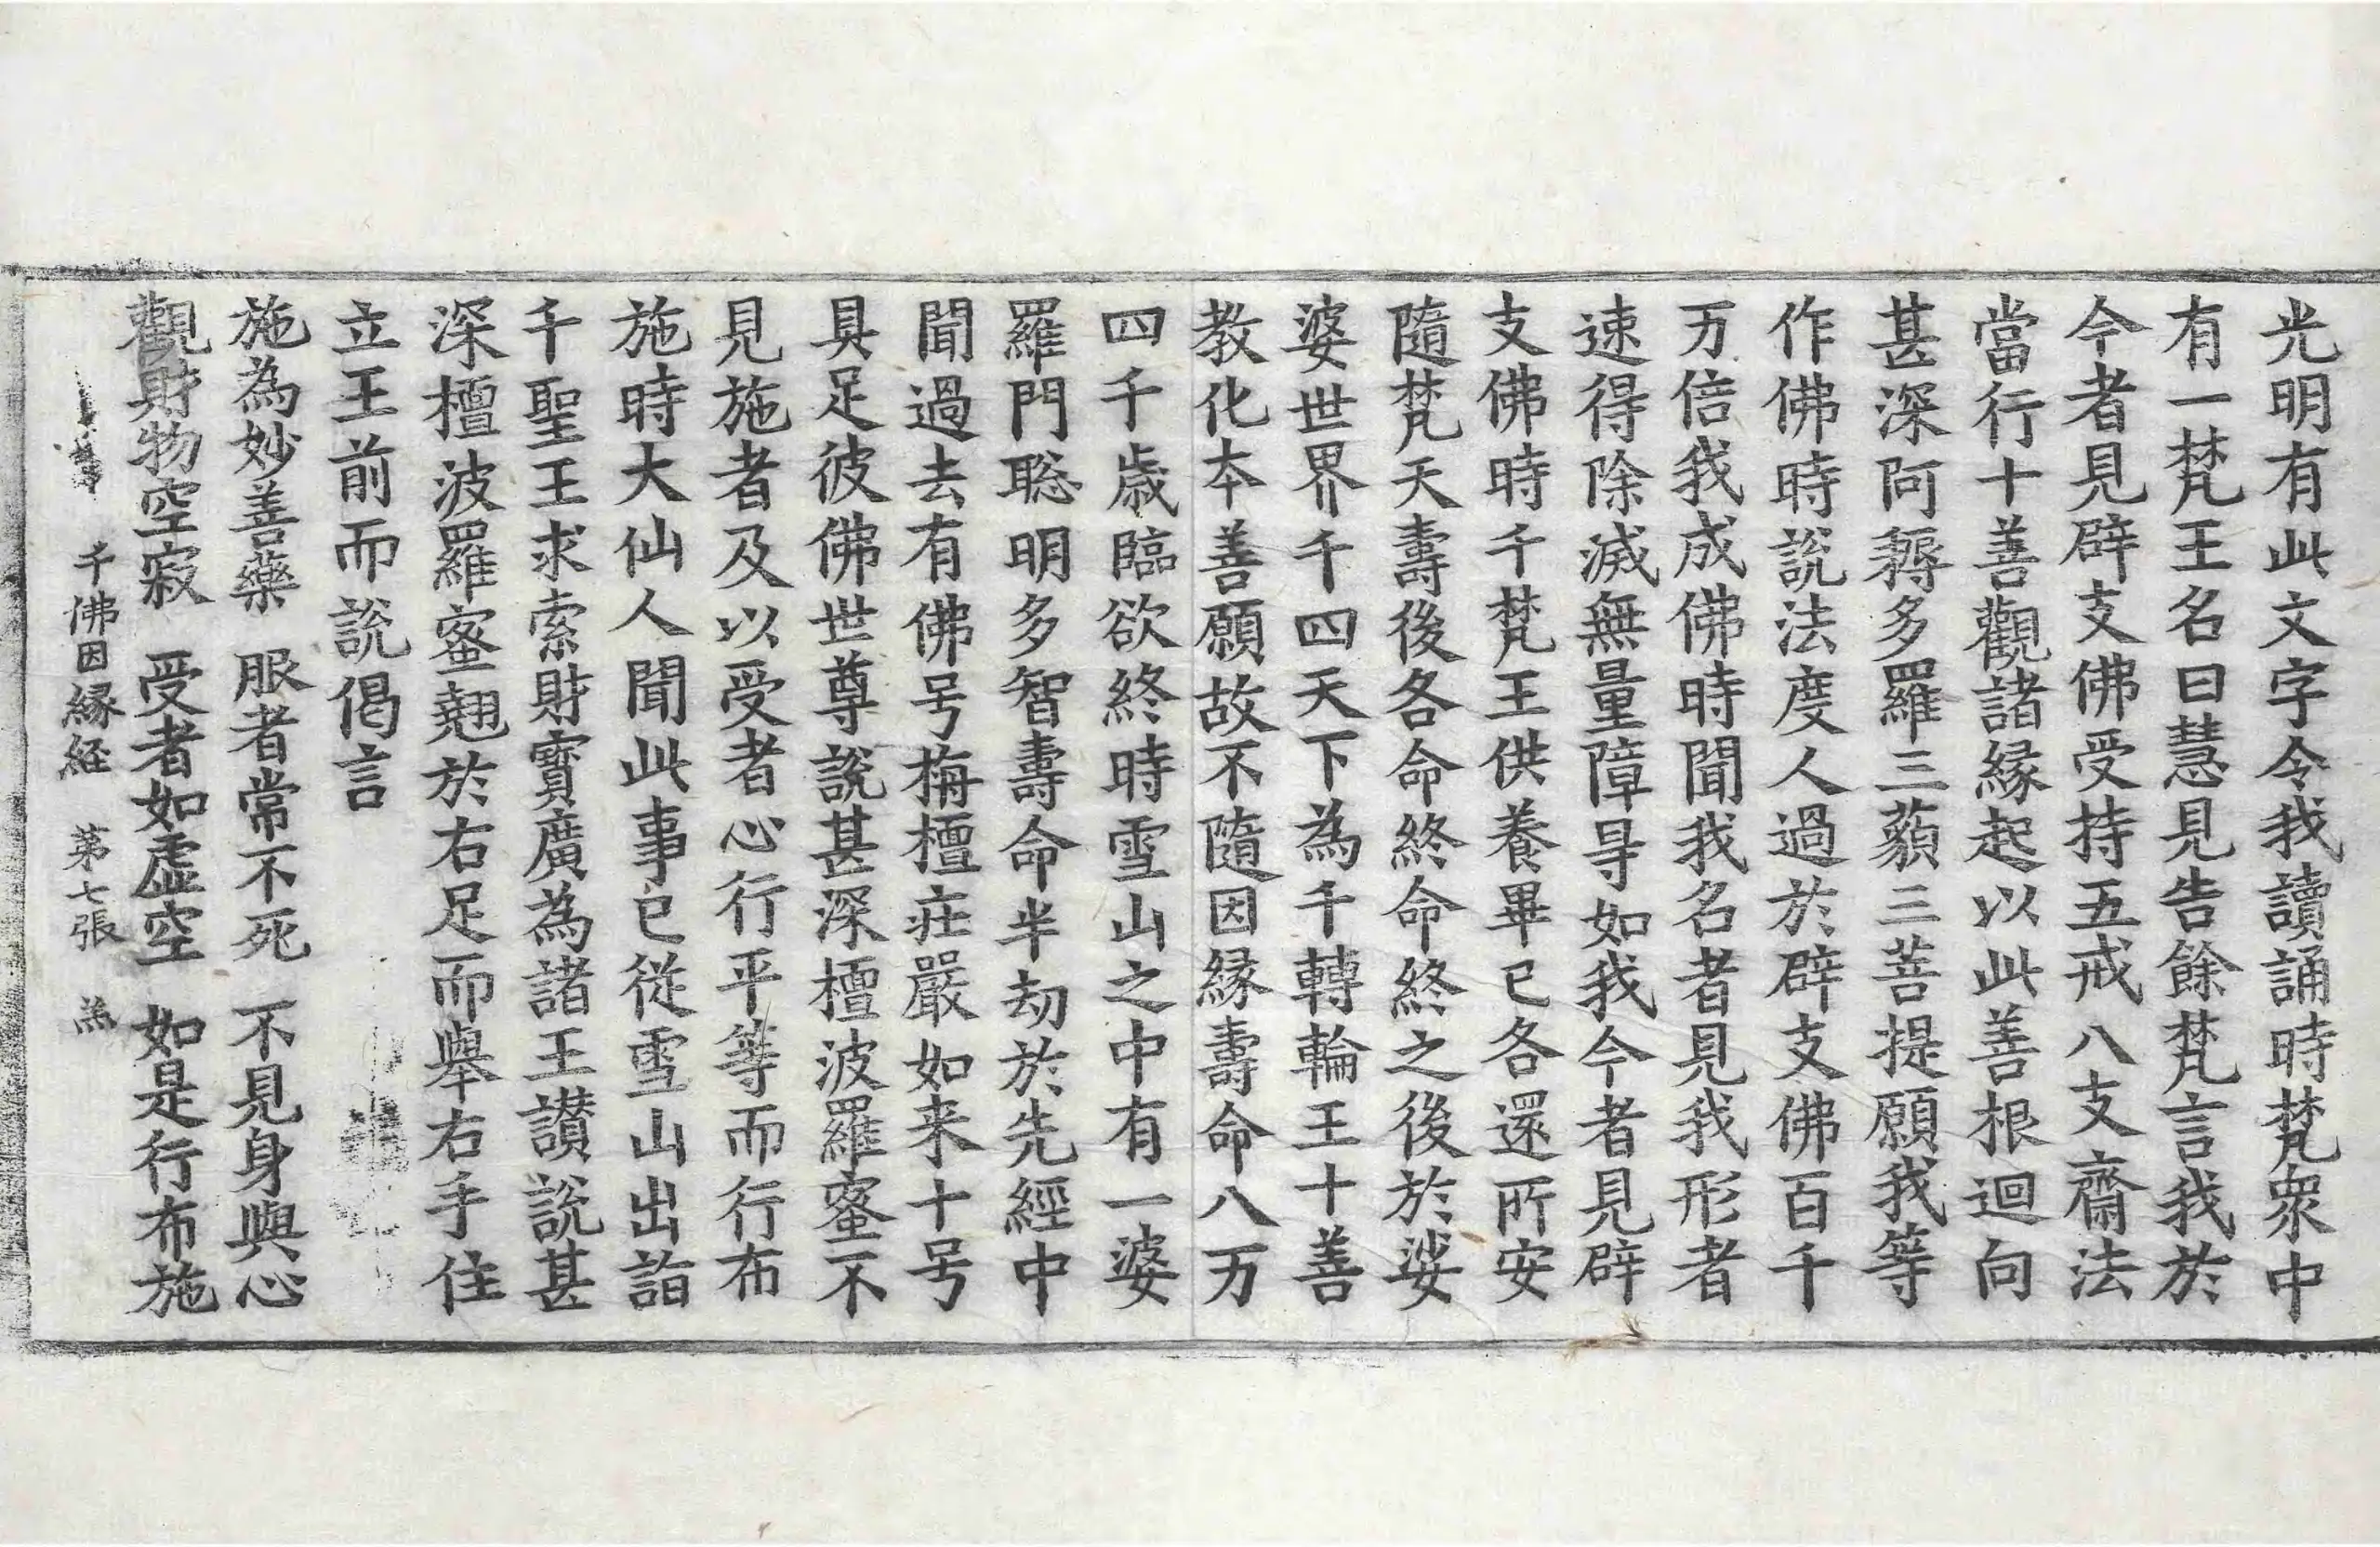 光明有此文字令我讀誦時梵衆中
有一梵王名曰慧見告餘梵言我於
今者見辟支佛受持五戒八支齋法
當行十善觀諸緣起以此善根迴向
甚深阿耨多羅三藐三菩提願我等
作佛時說法度人過於辟支佛百千
万倍我成佛時聞我名者見我形者
速得除滅無量障㝵如我今者見辟
支佛時千梵王供養畢已各還所安
隨梵天壽後各命終命終之後於娑
婆世界千四天下為千轉輪王十善
教化本善願故不隨因緣壽命八万
四千歲臨欲終時雪山之中有一婆
羅門聡明多智壽命半劫於先經中
聞過去有佛号栴檀莊嚴如来十号
具足彼佛世尊說甚深檀波羅蜜不
見施者及以受者心行平等而行布
施時大仙人聞此事已從雪山出詣
千聖王求索財寶廣為諸王讃說甚
深檀波羅蜜翹於右足而舉右手住
立王前而說偈言
施為妙善藥　服者常不死　不見身與心
觀財物空寂　受者如虛空　如是行布施
千佛因緣経　第七張　羔